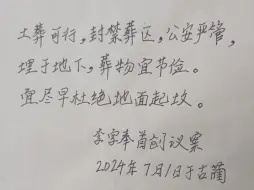 土葬可行，封禁葬区，公安严管，
埋于地下，葬物宜节俭。
宜尽早杜绝地面起坟。
李字奉首创议案
2024年7月1日于古蔺